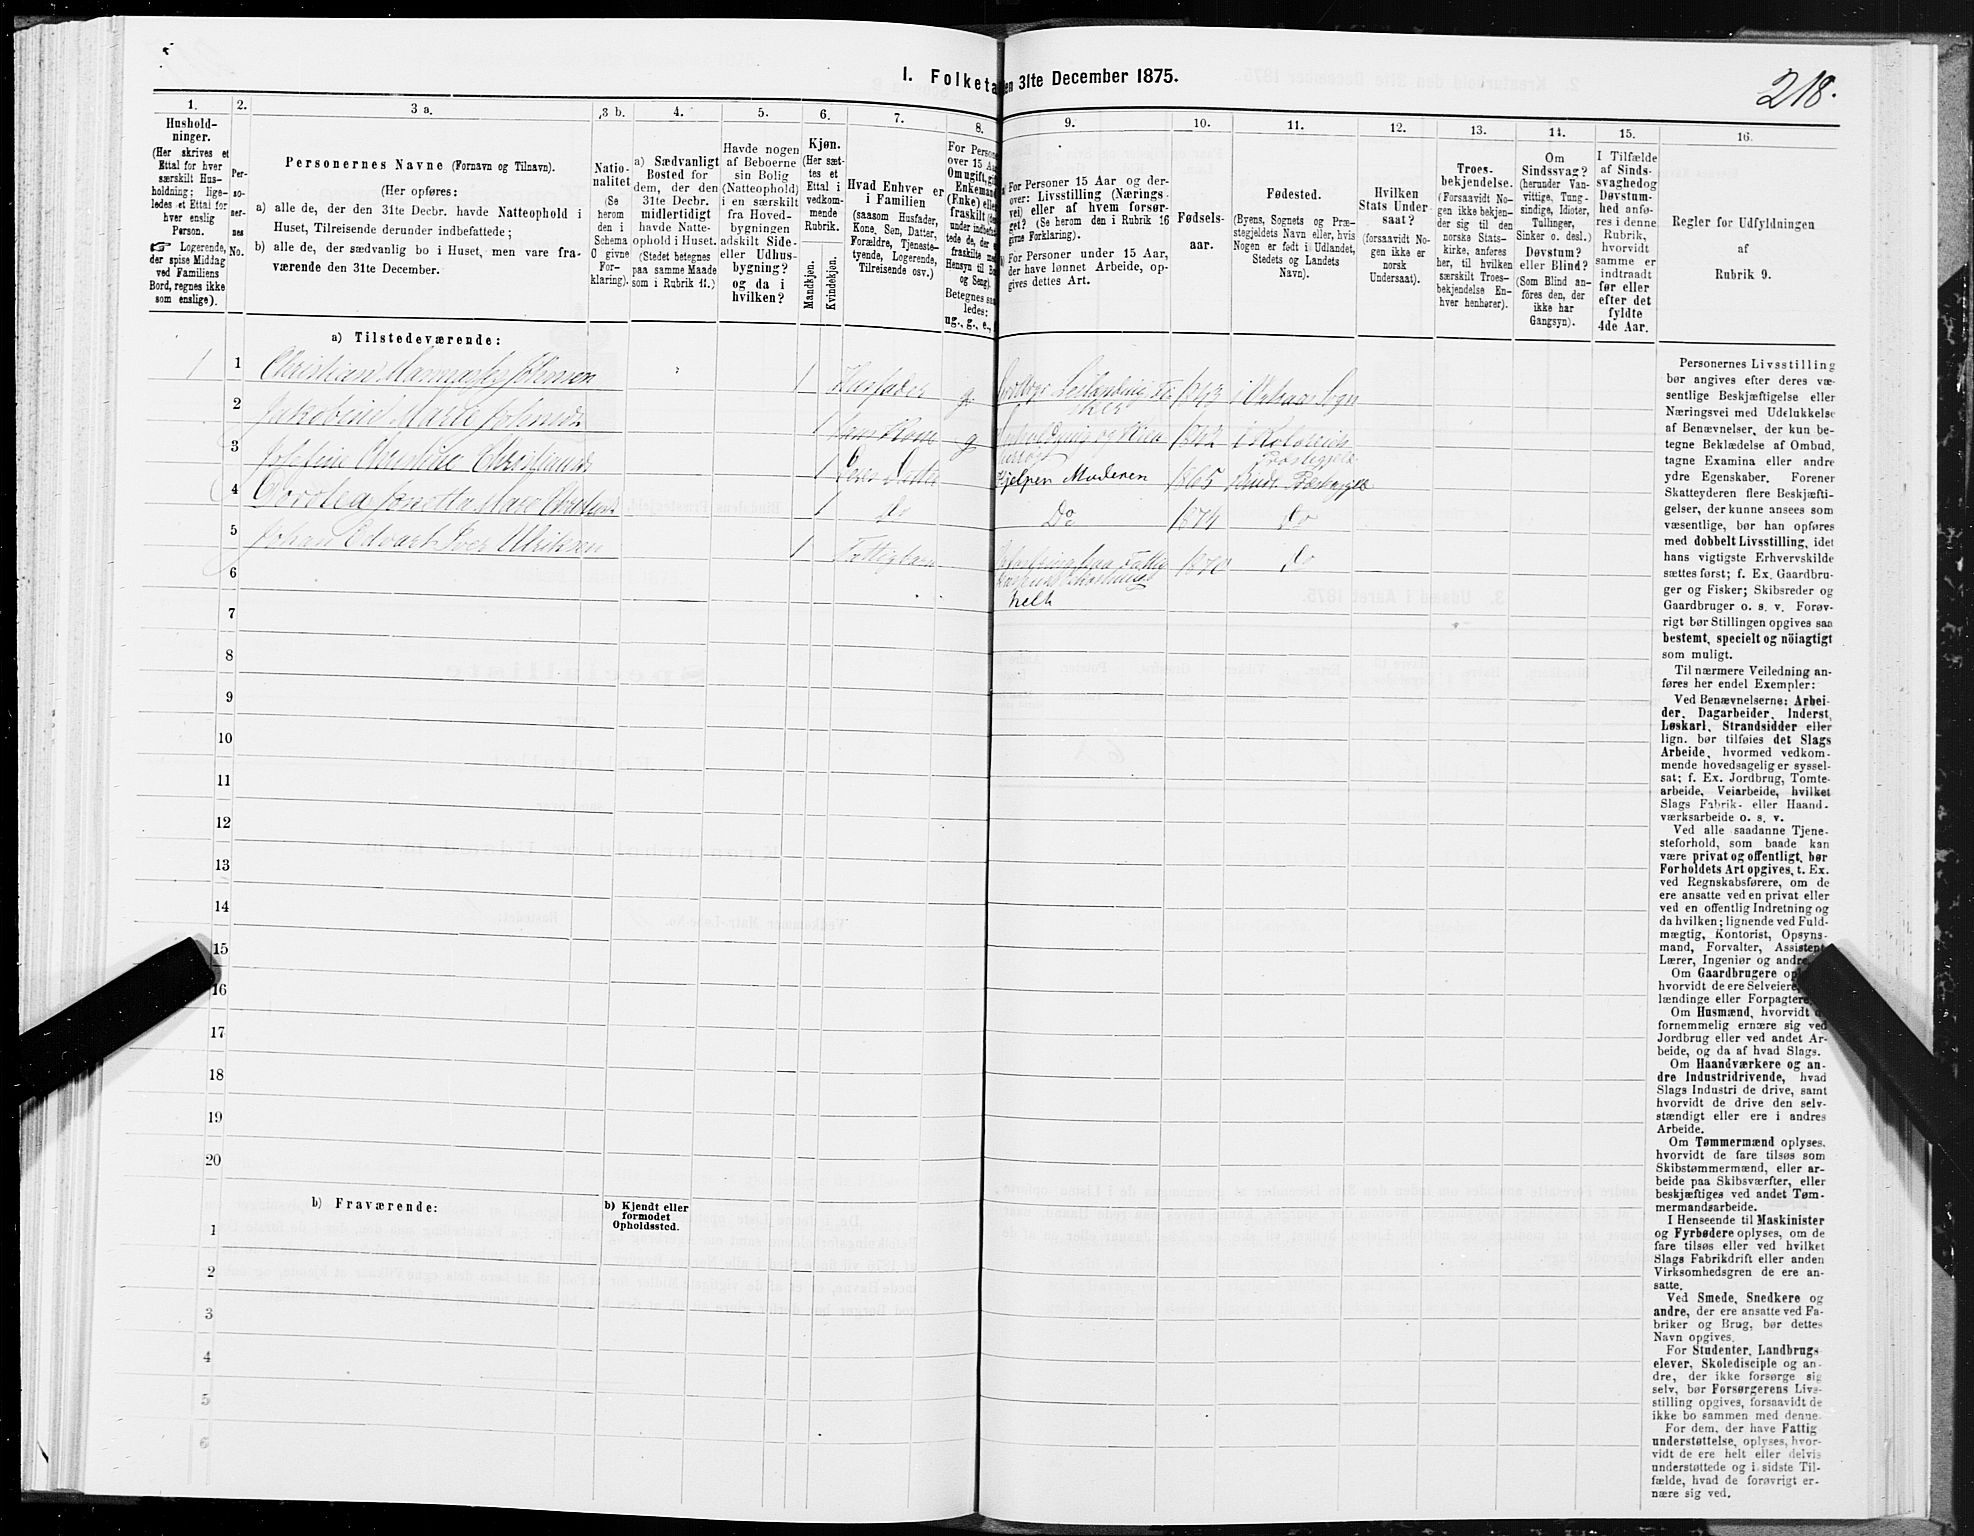 I. Folketa
en 31te December 1875.
218.
1.
2.
3 a.
3 b.
4.
5.
6.
7.
8.
9.
10.
11.
12.
13.
14.
15.
16.
Hushold-
ninger.
(Her skrives et
Ettal for hver
særskilt Hus-
holdning; lige-
ledes et Ettal for
hver enslig
Person.
☞ Logerende,
der spise Middag
ved Familiens
Bord, regnes ikke
som enslige).
Per-
so-
ner-
nes
No.
Personernes Navne (Fornavn og Tilnavn).
(Her opføres:
a) alle de, der den 31te Decbr. havde Natteophold i
Huset, Tilreisende derunder indbefattede;
b) alle de, der sædvanlig bo i Huset, men vare fra-
værende den 31te December.
Natio-
nalitet
(Se
herom
den i
Schema
0 givne
For-
klaring).
a) Sædvanligt
Bosted for
dem, der den
31te Decbr.
midlertidigt
havde Natte-
ophold i Huset.
(Stedet betegnes
paa samme Maade
som i Rubrik 11.)
Havde nogen
af Beboerne
sin Bolig
(Natteophold)
i en særskilt
fra Hoved-
bygningen
adskilt Side-
eller Udhus-
bygning?
og da i
hvilken?
Kjøn.
(Her sæt-
tes et
Ettal i
vedkom-
mende
Rubrik.
Mandkjøn.
Kvindekjøn.
Hvad Enhver er
i Familien
(saasom Husfader,
Kone, Søn, Datter,
Forældre, Tjeneste-
tyende, Logerende,
Tilreisende osv.)
For Person
over 15 Aa
Om ugift, gif
Enkemand
(Enke) elle
fraskilt (de
under indbefat-
tede de, de
fraskilte me
Hensyn til Bo
og Seng).
Betegnes saa
ledes:
ug., g., e.,
a) For Personer 15 Aar og der-
over: Livsstilling (Nærings-
vei) eller af hvem forsør-
get? (Se herom den i Rubrik 16
givne Forklaring).
b) For Personer under 15 Aar,
der have lønnet Arbeide, op-
gives dettes Art.
Fødsels-
aar.
Fødested.
(Byens, Sognets og Præ-
stegjeldets Navn eller, hvis
Nogen er født i Udlandet,
Stedets og Landets
Navn).
Hvilken
Stats Under-
saat?
(forsaavidt No-
gen ikke er
norsk
Undersaat).
Troes-
bekjendelse.
(Forsaavidt No-
gen ikke bekjen-
der sig til den
norske Stats-
kirke, anføres
her, til hvilken
særskilt Troes-
bekjendelse En-
hver henhører).
Om
Sindssvag?
(herunder Van-
vittige, Tung-
sindige, Idioter,
Tullinger,
Sinker o. desl.)
Døvstum?
eller Blind?
(Som Blind an-
føres den, der
ikke har
Gangsyn).
I Tilfælde
af Sinds-
svaghed og
Døvstum-
hed anfø-
res i denne
Rubrik,
hvorvidt
samme er
indtraadt
før eller
efter det
fyldte
4de Aar.
Regler for Udfyldningen
af
Rubrik 9.
a) Tilstedeværende:
1 1 Christian 1 Husfader g 1843 i Sogn
2 Jakobine Marie 1 Hans Kone g 1842 i Kolvereid
Præstegjeld
3 Christine 1 Deres Datter Hjelper Moderen 1865
4 1 do Do 1874 do
5 Johan Edvart Iver Ulriksen 1 1870 do
6
helt
7
8
9
10
11
12
13
14
15
16
17
18
19
20
b) Fraværende:
b) Kjendt eller
formodet
Opholdssted.
1
2
3
4
5
6
Personernes Livsstilling
bør angives efter deres væ-
sentlige Beskjæftigelse eller
Næringsvei med Udelukkelse
af Benævnelser, der kun be-
tegne Beklædelse af Ombud,
tagne Examina eller andre
ydre Egenskaber. Forener
Skatteyderen flere Beskjæfti-
gelser, der kunne ansees som
væsentlige, bør han opføres
med dobbelt Livsstilling, idet
hans vigtigste Erhvervskilde
sættes først; f. Ex. Gaardbru-
ger og Fisker; Skibsreder og
Gaardbruger o. s. v. Forøv-
rigt bør Stillingen opgives saa
bestemt, specielt og nöiagtigt
som muligt.
Til nærmere Veiledning an-
føres her endel Exempler:
Ved Benævnelserne: Arbei-
der, Dagarbeider, Inderst,
Løskarl, Strandsidder eller
lign. bør tilføies det Slags
Arbeide, hvormed vedkom-
mende hovedsagelig er syssel-
sat; f. Ex. Jordbrug, Tomte-
arbeide, Veiarbeide, hvilket
Slags Fabrik- eller Haand-
værksarbeide o. s. v.
Ved alle saadanne Tjene-
steforhold, som baade kan
være privat og offentligt, bør
Forholdets Art opgives, t. Ex.
ved Regnskabsførere, om de
ere ansatte ved en privat eller
ved en offentlig Indretning og
da hvilken; lignende ved Fuld-
mægtig, Kontorist, Opsyns-
mand, Forvalter, Assistent,
Lærer, Ingeniør og andre.
Om Gaardbrugere opl
hvorvidt de ere Selveiere,
lændinge eller Forpagtere,
Om Husmænd, hvorvidt d
fornemmelig ernære sig ved
Jordbrug eller ved andet Ar-
beide, og da af hvad Slags.
Om Haandværkere og an-
dre Industridrivende, hvad
Slags Industri de drive, samt
hvorvidt de drive den selv-
stændigt eller ere i andres
Arbeide.
Om Tømmermænd oplyses,
hvorvidt de fare tilsøs som
Skibstømmermænd, eller ar-
beide paa Skibsværfter, eller
beskjæftiges ved andet Tøm-
mermandsarbeide.
I Henseende til Maskinister
og Fyrbødere oplyses, om de
fare tilsøs eller ved hvilket
Slags Fabrikdrift eller anden
Virksomhedsgren de ere an-
satte.
Ved Smede, Snedkere og
andre, der ere ansatte ved Fa-
briker og Brug, bør dettes
Navn opgives.
For Studenter, Landbrugs
elever, Skoledisciple og an-
dre, der ikke forsørge sig
selv, bør Forsørgerens Livs-
stilling opgives, forsaavidt de
ikke bo sammen med denne.
For dem, der have Fattig
understøttelse, oplyses, hvor-
vidt de ere helt eller delvis
understøttede og i sidste Til-
fælde, hvad de forøvrigt er-
nære sig ved.